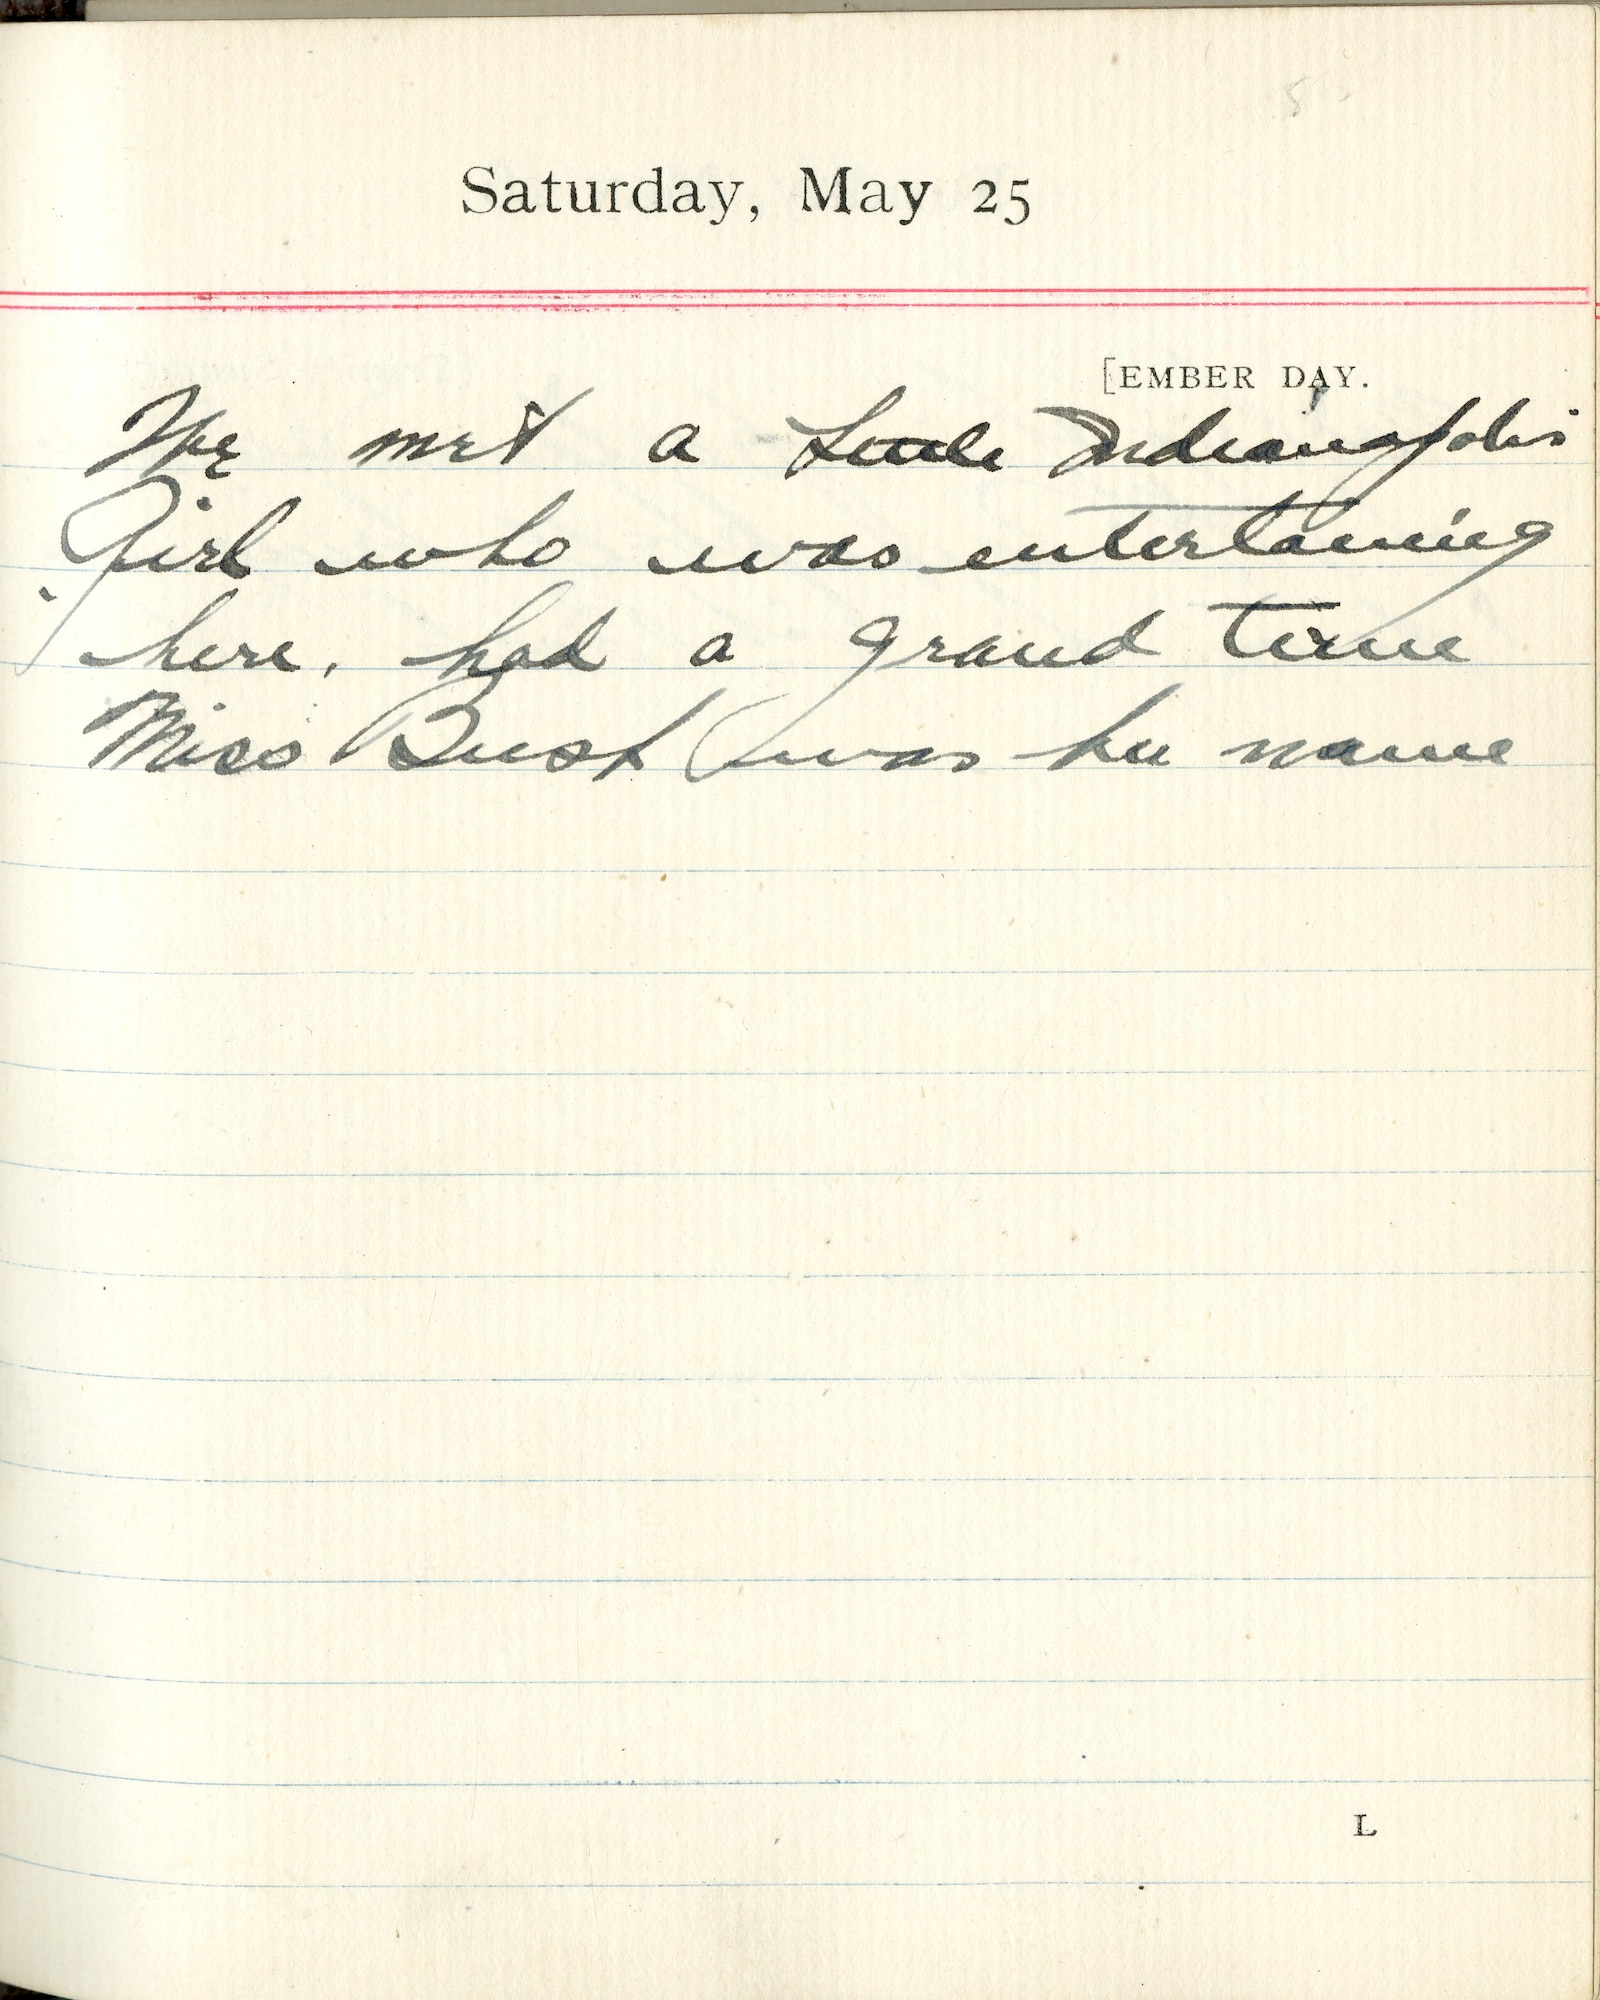 Saturday, May 25
[EMBER DAY.
We met a Little Indianapolis
Girl who was entertaining
here. had a grand time
Miss was her name
L